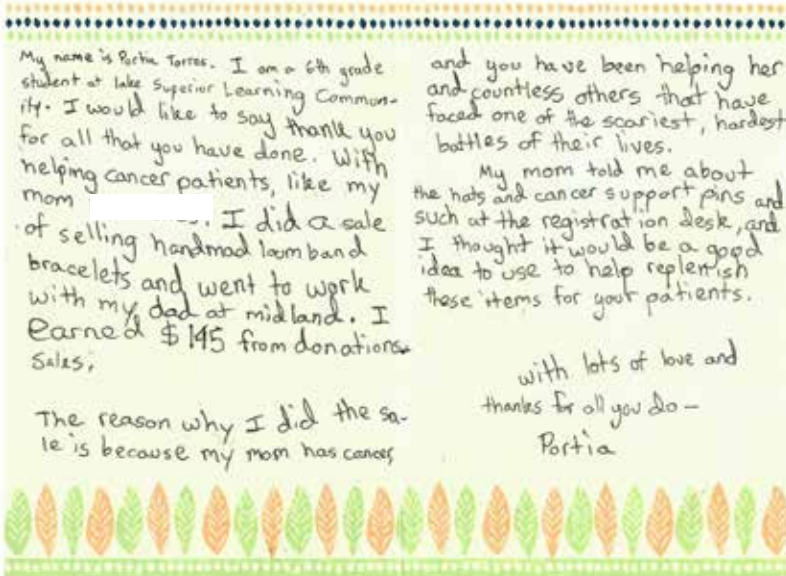 My name is Portia Torres. I am a 6th grade
student at lake Superior Learning Commun-
ity. I would like to say thank you
for all that you have done. With
helping cancer patients, like my
mom
. I did a sale
of selling handmad loom band
bracelets and went to work
with my dad at midland. I
earned $145 from donations
Sales,
The reason why I did the sa-
le is because my mom has cancer,
and you have been helping her
and countless others that have
faced one of the scariest, hardest
battles of their lives.
My mom told me about
the hats and cancer support pins and
such at the registration desk, and
I thought it would be a good
idea to use to help replenish
these items for your patients.
with lots of love and
thanks for all you do -
Portia